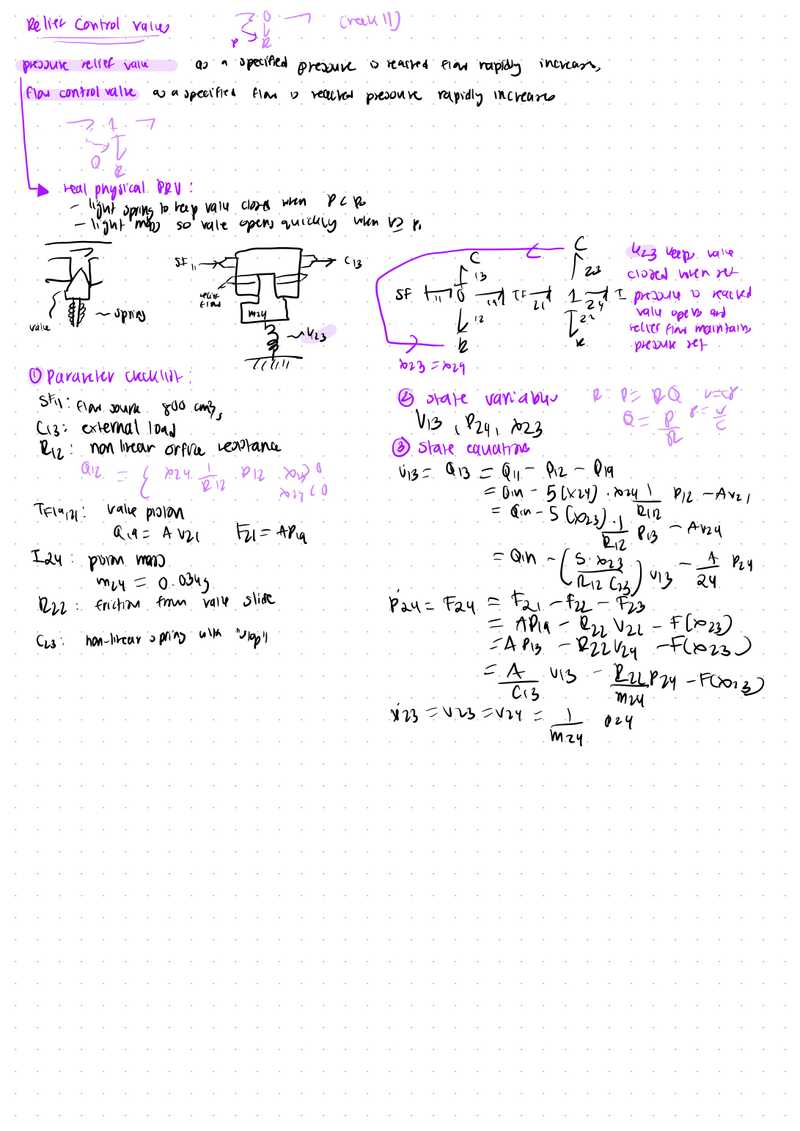 Relief Control valves
O
(week 11)
P
R
pressure relief valve as a specified pressure is reached flow rapidly increases,
flow control valve as a specified flow is reached pressure rapidly increases
1
O
R
real physical PRV:
- light spring to keep valve closed when P < P₀
- light mass so valve opens quickly when
SF₁₁
C₁₃
relief flow
m24
K₂₃
valve
spring
C
13
SF
11
0
19
TF
21
12
R
C
23
1
24
I
22
R
x23 = x24
K23 keeps valve
closed when set
pressure is reached
valve opens and
relief flow maintains
pressure set
① Parameter checklist:
SF₁₁: flow source 800 cm³/s
C₁₃: external load
R₁₂: non linear orifice resistance
Q₁₂ = { x24 · 1/R₁₂ P₁₂ x24 > 0
x24 < 0
TF19,21: valve piston
Q19 = A V21 F21 = AP19
I24: piston mass
m24 = 0.03kg
R22: friction from valve slide
C23: non-linear spring with "stop"
② state variables
V₁₃, P24, x23
R: P = RQ
Q = P/R
③ State equations
V̇13 = Q13 = Q11 - P12 - P19
= Qin - 5(x24) · x24 1/R12 P12 - AV21
= Qin - 5(x23) · 1/R12 P13 - AV24
= Qin - (5·x23/R12 C13) V13 - A/24 P24
Ṗ24 = F24 = F21 - F22 - F23
= AP19 - R22 V22 - F(x23)
= A P13 - R22 V24 - F(x23)
= A/C13 V13 - R22/m24 P24 - F(x23)
ẋ23 = V23 = V24 = 1/m24 P24